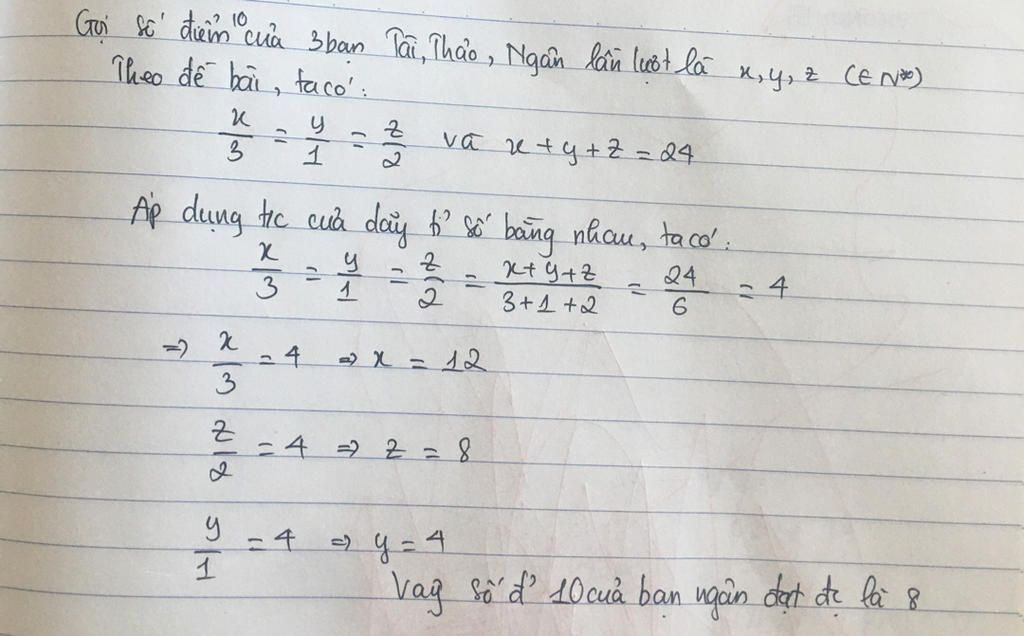 Gọi số điểm 10 của 3 bạn Tài, Thảo, Ngân lần lượt là x, y, z (∈ N*)
Theo đề bài, ta có:
x/3 = y/1 = z/2 và x + y + z = 24
Áp dụng t/c của dãy tỉ số bằng nhau, ta có:
x/3 = y/1 = z/2 = (x+y+z)/(3+1+2) = 24/6 = 4
⇒ x/3 = 4 ⇒ x = 12
z/2 = 4 ⇒ z = 8
y/1 = 4 ⇒ y = 4
Vậy số đ' 10 của bạn ngân đạt đc là 8